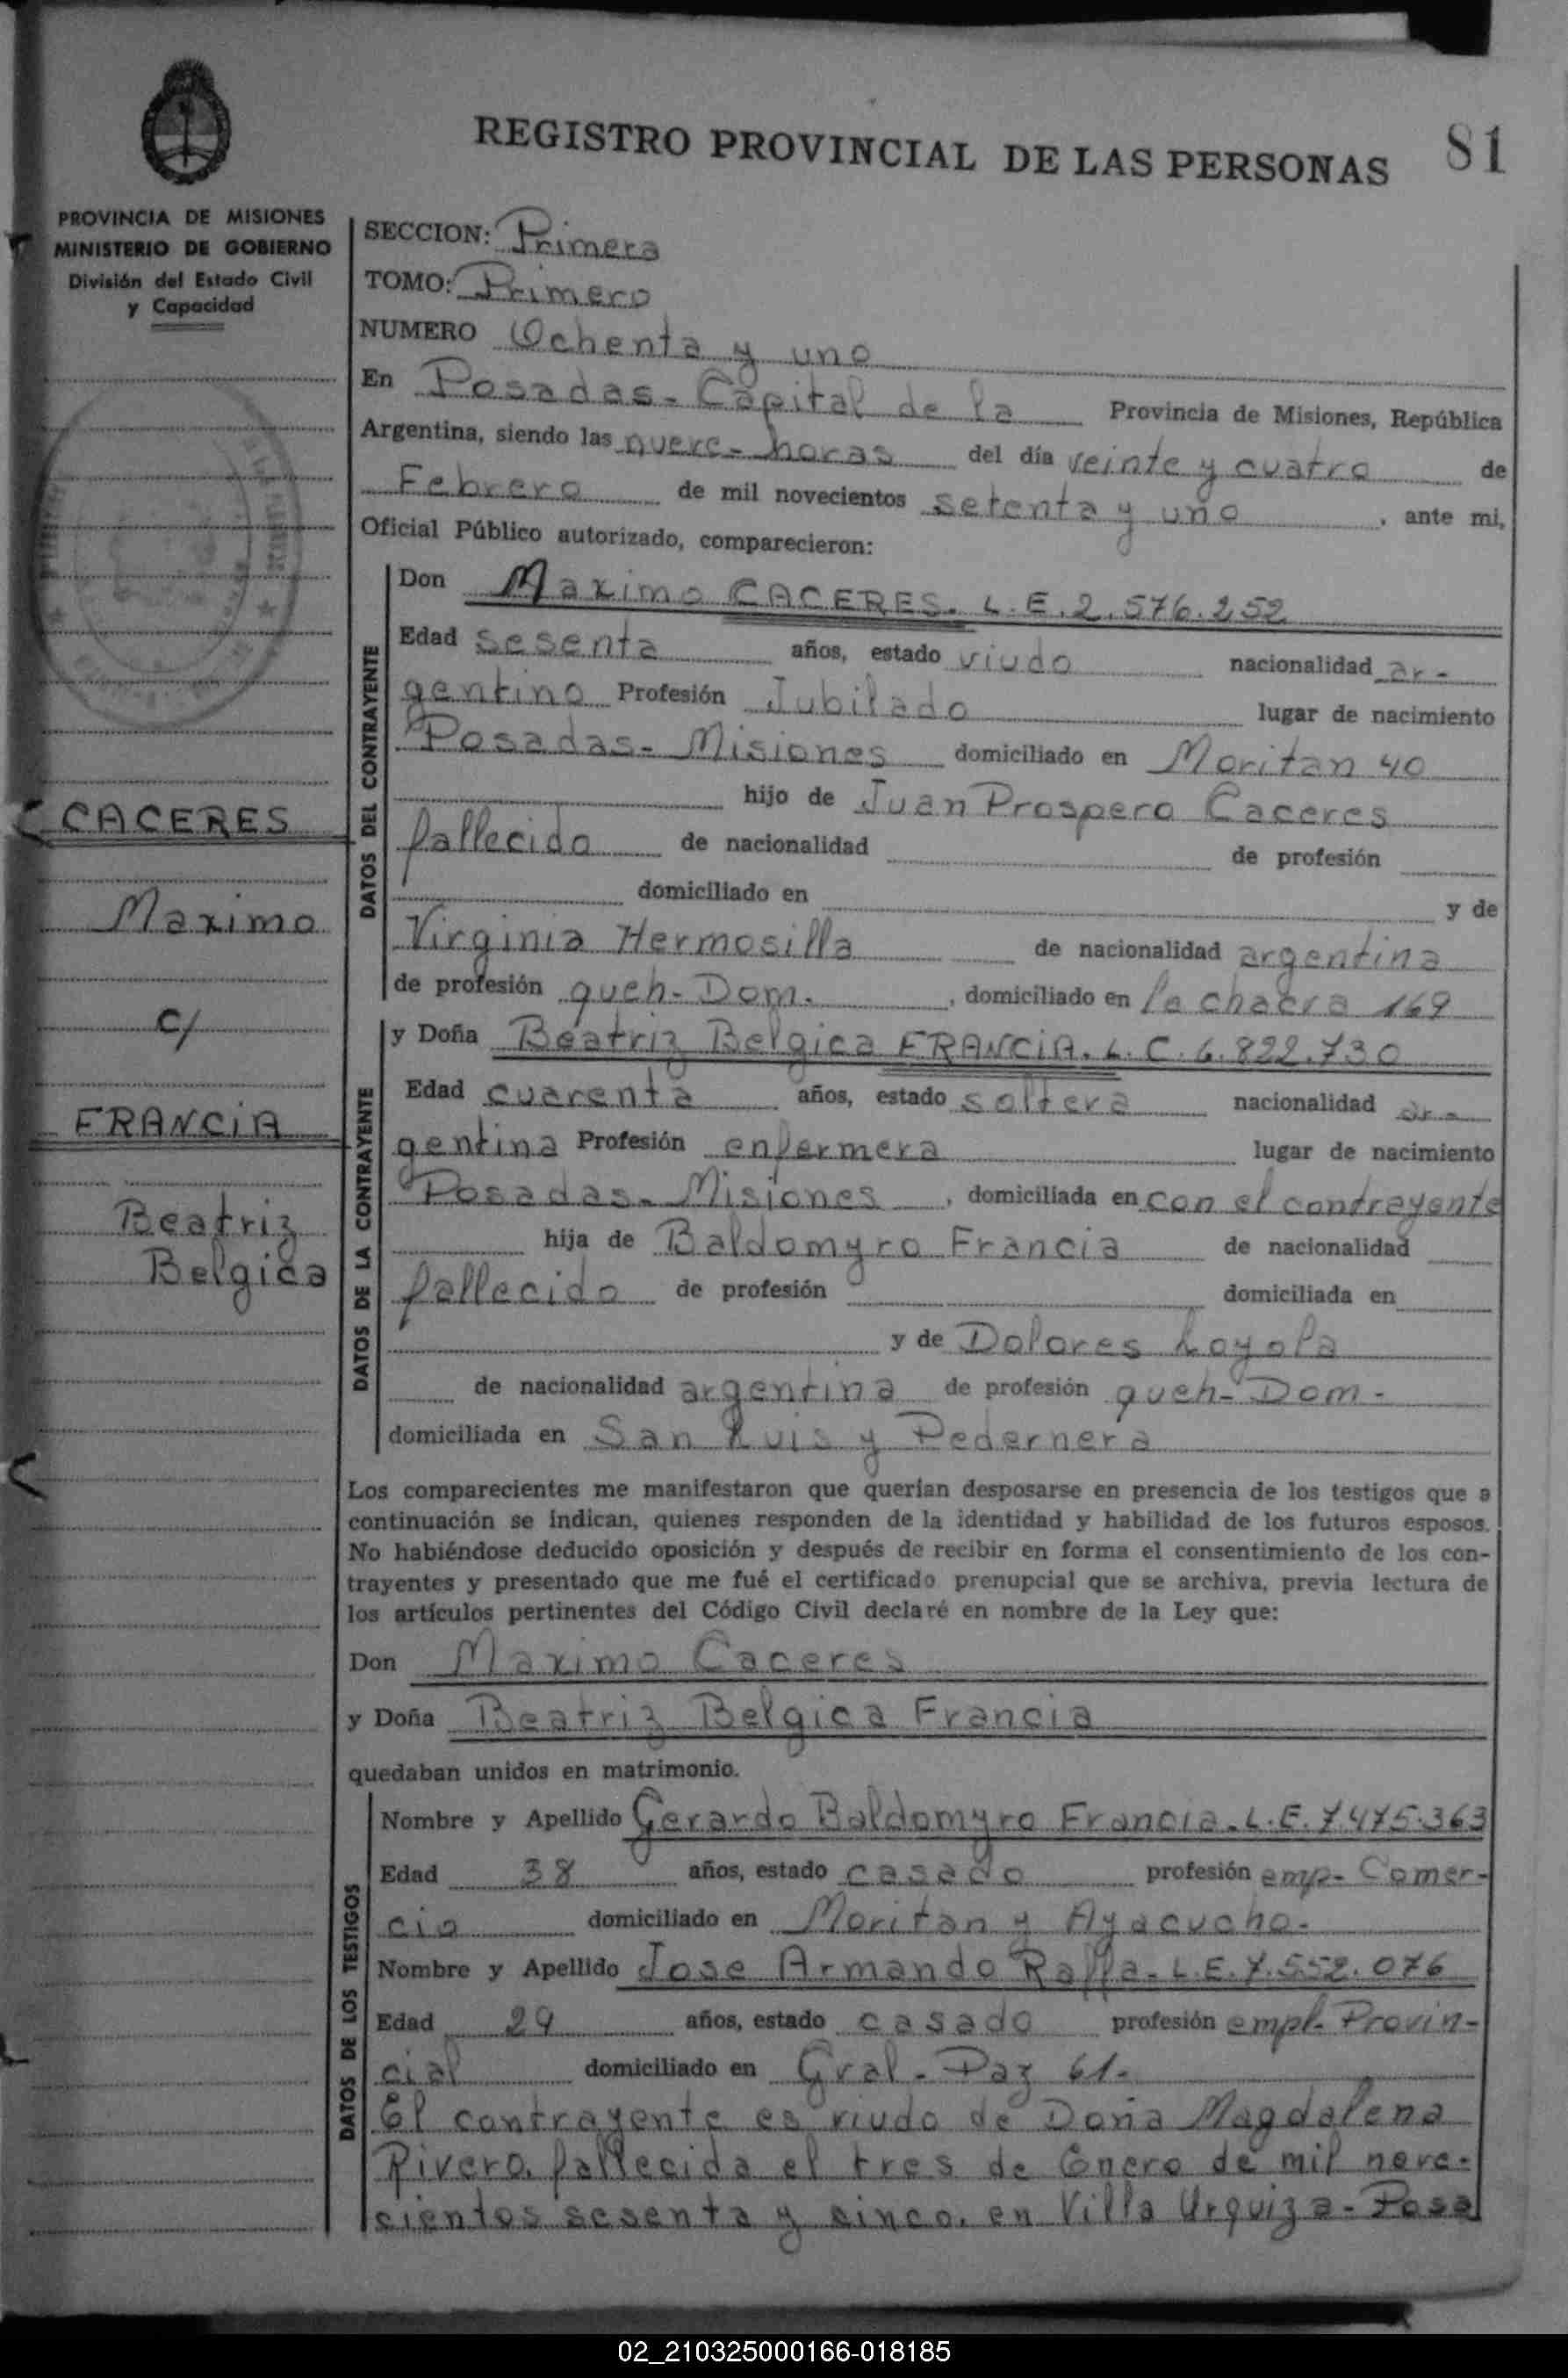 REGISTRO PROVINCIAL DE LAS PERSONAS 81
PROVINCIA DE MISIONES
MINISTERIO DE GOBIERNO
División del Estado Civil
y Capacidad
SECCION: Primera
TOMO: Primero
NUMERO Ochenta y uno
En Posadas - Capital de la Provincia de Misiones, República
Argentina, siendo las nueve - horas del día veinte y cuatro de
Febrero de mil novecientos setenta y uno, ante mi,
Oficial Público autorizado, comparecieron:
DATOS DEL CONTRAYENTE
Don Maximo CACERES. L.E. 2.576.252
Edad sesenta años, estado viudo nacionalidad ar-
gentino Profesión Jubilado lugar de nacimiento
Posadas - Misiones domiciliado en Moritan 40
hijo de Juan Prospero Caceres
fallecido de nacionalidad de profesión
domiciliado en y de
Virginia Hermosilla de nacionalidad argentina
de profesión queh - Dom., domiciliado en la chacra 169
CACERES
Maximo
c/
FRANCIA
Beatriz
Belgica
DATOS DE LA CONTRAYENTE
y Doña Beatriz Belgica FRANCIA. L.C. 6.822.730
Edad cuarenta años, estado soltera nacionalidad ar-
gentina Profesión enfermera lugar de nacimiento
Posadas - Misiones, domiciliada en con el contrayente
hija de Baldomyro Francia de nacionalidad
fallecido de profesión domiciliada en
y de Dolores Loyola
de nacionalidad argentina de profesión queh - Dom -
domiciliada en San Luis y Pedernera
Los comparecientes me manifestaron que querían desposarse en presencia de los testigos que a
continuación se indican, quienes responden de la identidad y habilidad de los futuros esposos.
No habiéndose deducido oposición y después de recibir en forma el consentimiento de los con-
trayentes y presentado que me fué el certificado prenupcial que se archiva, previa lectura de
los artículos pertinentes del Código Civil declaré en nombre de la Ley que:
Don Maximo Caceres
y Doña Beatriz Belgica Francia
quedaban unidos en matrimonio.
DATOS DE LOS TESTIGOS
Nombre y Apellido Gerardo Baldomyro Francia. L.E. 7.475.363
Edad 38 años, estado casado profesión emp - Comer-
cio domiciliado en Moritan y Ayacucho -
Nombre y Apellido Jose Armando Raffa - L.E. 7.552.076
Edad 29 años, estado casado profesión empl - Provin-
cial domiciliado en Gral - Paz 61 -
El contrayente es viudo de Doña Magdalena
Rivero, fallecida el tres de Enero de mil nove-
cientos sesenta y cinco. en Villa Urquiza - Posa
02_210325000166-018185